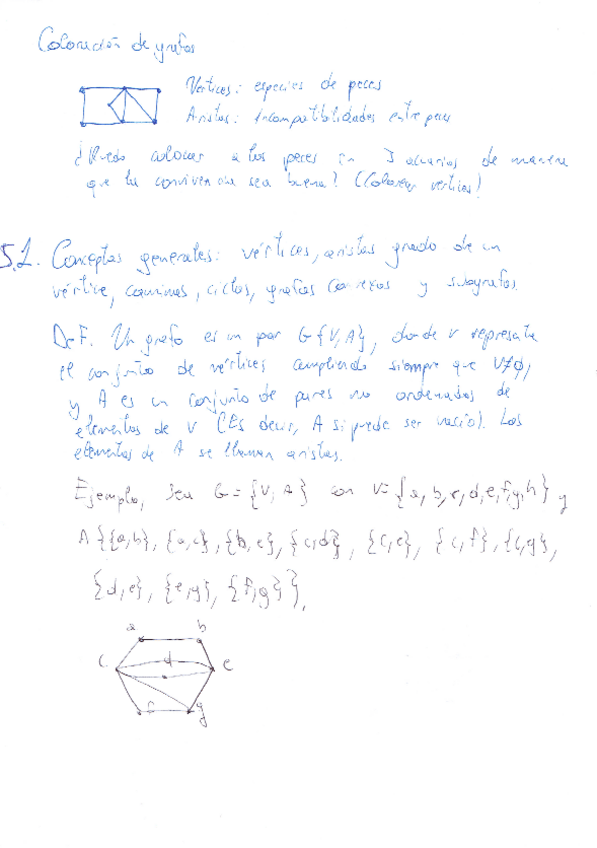 Coloración de grafos
Vértices: especies de peces
Aristas: Incompatibilidades entre peces
¿Puedo colocar a los peces en 3 acuarios de manera
que la convivencia sea buena? (Colorear vértices)
5.1. Conceptos generales: vértices, aristas grado de un
vértice, caminos, ciclos, grafos conexos y subgrafos
DEF. Un grafo es un par G{V,A}, donde V representa
el conjunto de vértices cumpliendo siempre que V≠∅,
y A es un conjunto de pares no ordenados de
elementos de V (Es decir, A si puede ser vacío). Los
elementos de A se llaman aristas.
Ejemplo, sea G={V,A} con V={a,b,c,d,e,f,g,h} y
A{{a,b}, {a,c}, {b,e}, {c,d}, {c,e}, {c,f}, {c,g},
{d,e}, {e,g}, {f,g}},
a b
c d e
f g